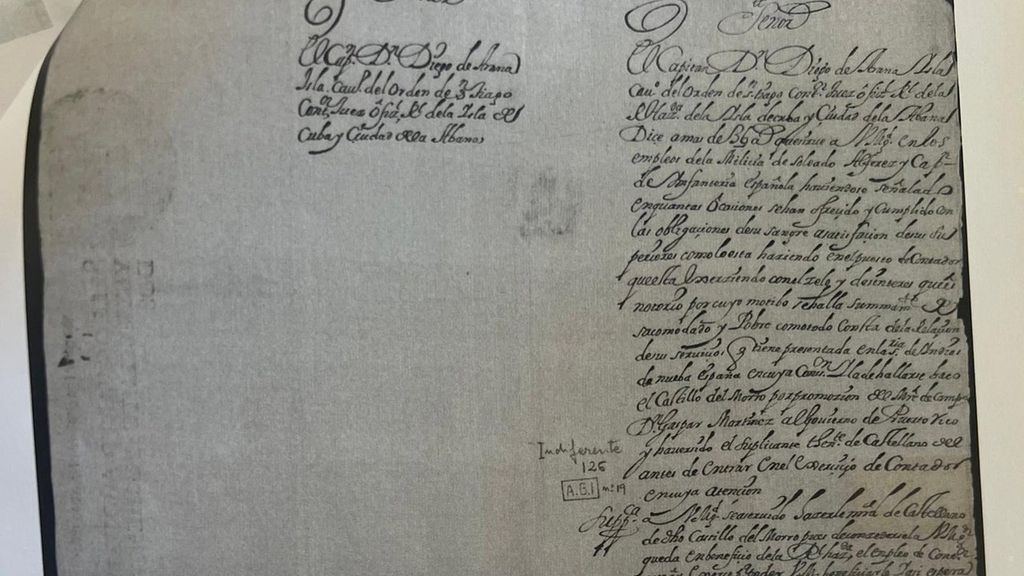 Señor
El Cap.n D.n Diego de Arana
Isla, Cau.o del Orden de S.tiago
Cont.or Juez ofiz.l R.l dela Isla de
Cuba y Ciudad dela Abana
Señor
El Capitan D.n Diego de Arana Isla
Cau.o del Orden de S.tiago Cont.or Juez ofiz.l R.l dela
R.l Haz.da dela Isla de cuba y Ciudad dela Abana
Dice a mas de 36 a.s que sirue a V. Mg.d en los
empleos dela Milicia de Soldado Alferez y Cap.n
de Infanteria Española hauiendose señalado
en quantas Ocasiones se han ofrecido y Cumplido con
las obligaciones de su sangre a satisfacion de sus su
periores como lo esta haciendo en el puesto de Contador
que esta Exerziendo con el zelo y desinteres que es
notorio por cuyo motibo se halla summam.te de
sacomodado y Pobre como todo Consta dela Relazion
de sus seruicios q tiene presentada en la S.ria de Indias
de nueba España en cuya Com.on
el Castillo del Morro por promozion del M.re de Campo
D.n Gaspar Martinez al Gouierno de Puerto Rico
y hauiendo el suplicante then.te de Castellano del
antes de Entrar en el Exercicio de Contador
en cuya atencion
Supp.ca a V. Mg.d se seruido hazerle mrd de Castellano
de dho Castillo del Morro pues
queda en beneficio dela R.l haz.da el empleo de Cont.or
Indiferente
126
A.G.I nº 19